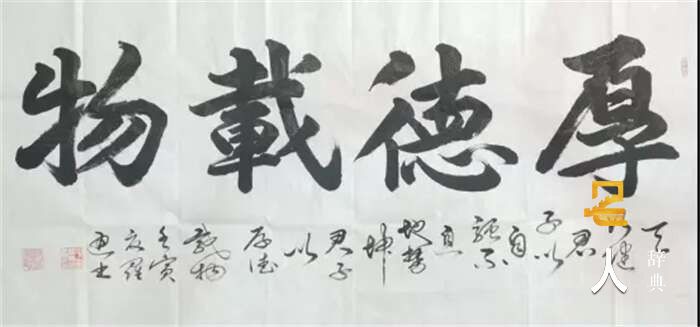 厚德載物
天
行健
君
子以
自
強不
息
地勢
坤
君子
以
厚德
載物
壬寅
夏羅
名人
辞典